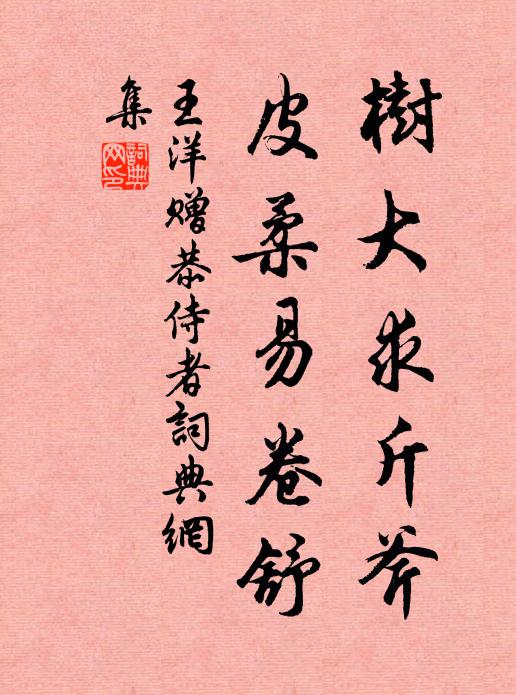 樹大求斤斧
皮柔易卷舒
王洋贈恭侍者詞典網
集
詞典網印